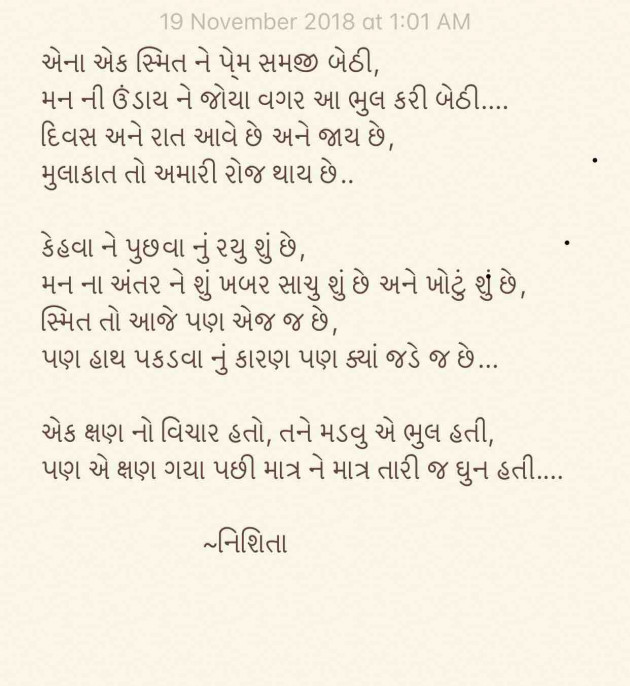 19 November 2018 at 1:01 AM
એના એક સ્મિત ને પે્મ સમજી બેઠી,
મન ની ઉંડાય ને જોયા વગર આ ભુલ કરી બેઠી....
દિવસ અને રાત આવે છે અને જાય છે,
મુલાકાત તો અમારી રોજ થાય છે..
કેહવા ને પુછવા નું રયુ શું છે,
મન ના અંતર ને શું ખબર સાચુ શું છે અને ખોટું શું છે,
સ્મિત તો આજે પણ એજ જ છે,
પણ હાથ પકડવા નું કારણ પણ ક્યાં જડે જ છે...
એક ક્ષણ નો વિચાર હતો, તને મડવુ એ ભુલ હતી,
પણ એ ક્ષણ ગયા પછી માત્ર ને માત્ર તારી જ ધુન હતી....
~નિશિતા